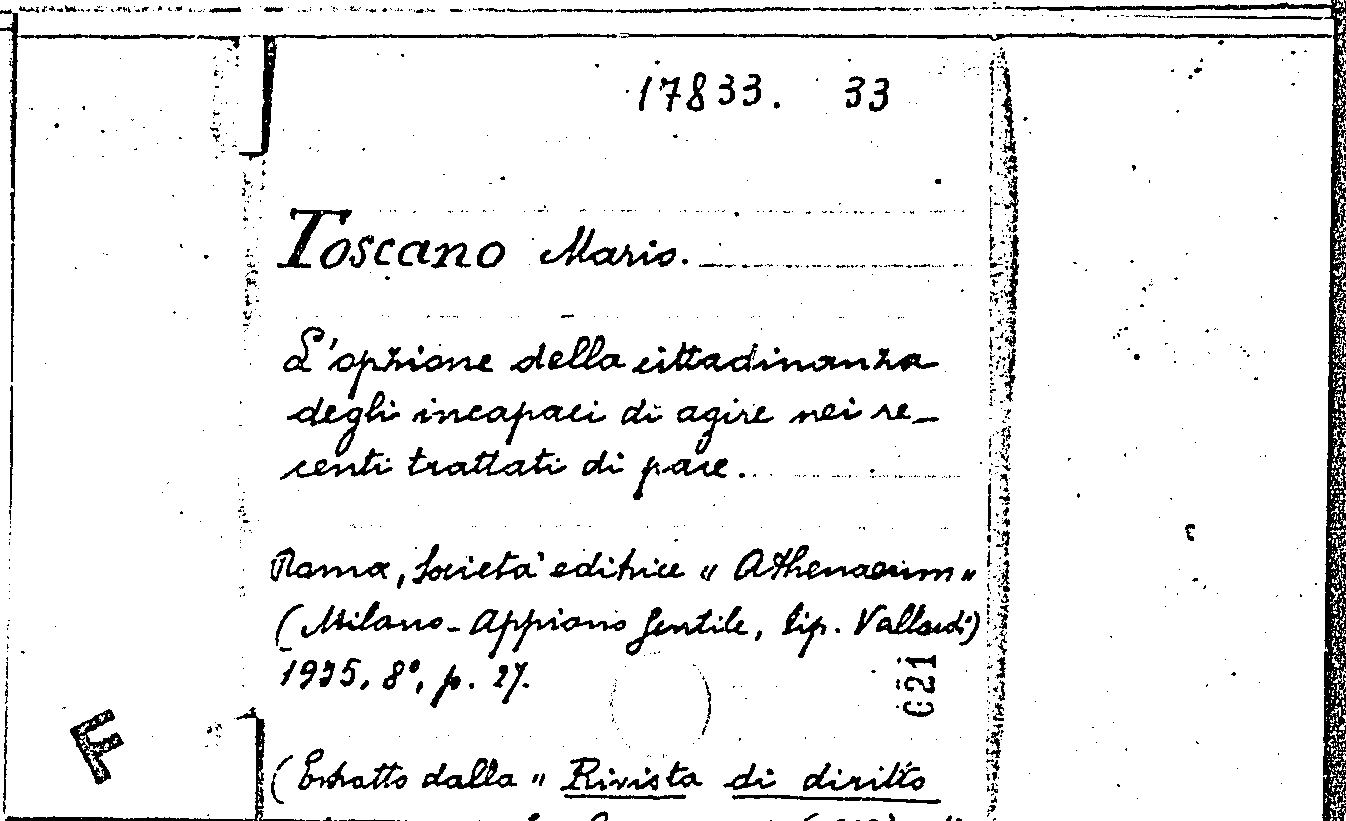 17833. 33
Toscano Mario.
L'opzione della cittadinanza
degli incapaci di agire nei re-
centi trattati di pace.
Roma, Società editrice « Athenaeum »
(Milano - Appiano Gentile, tip. Vallardi)
1935, 8°, p. 27.
021
F
(Estratto dalla « Rivista di diritto